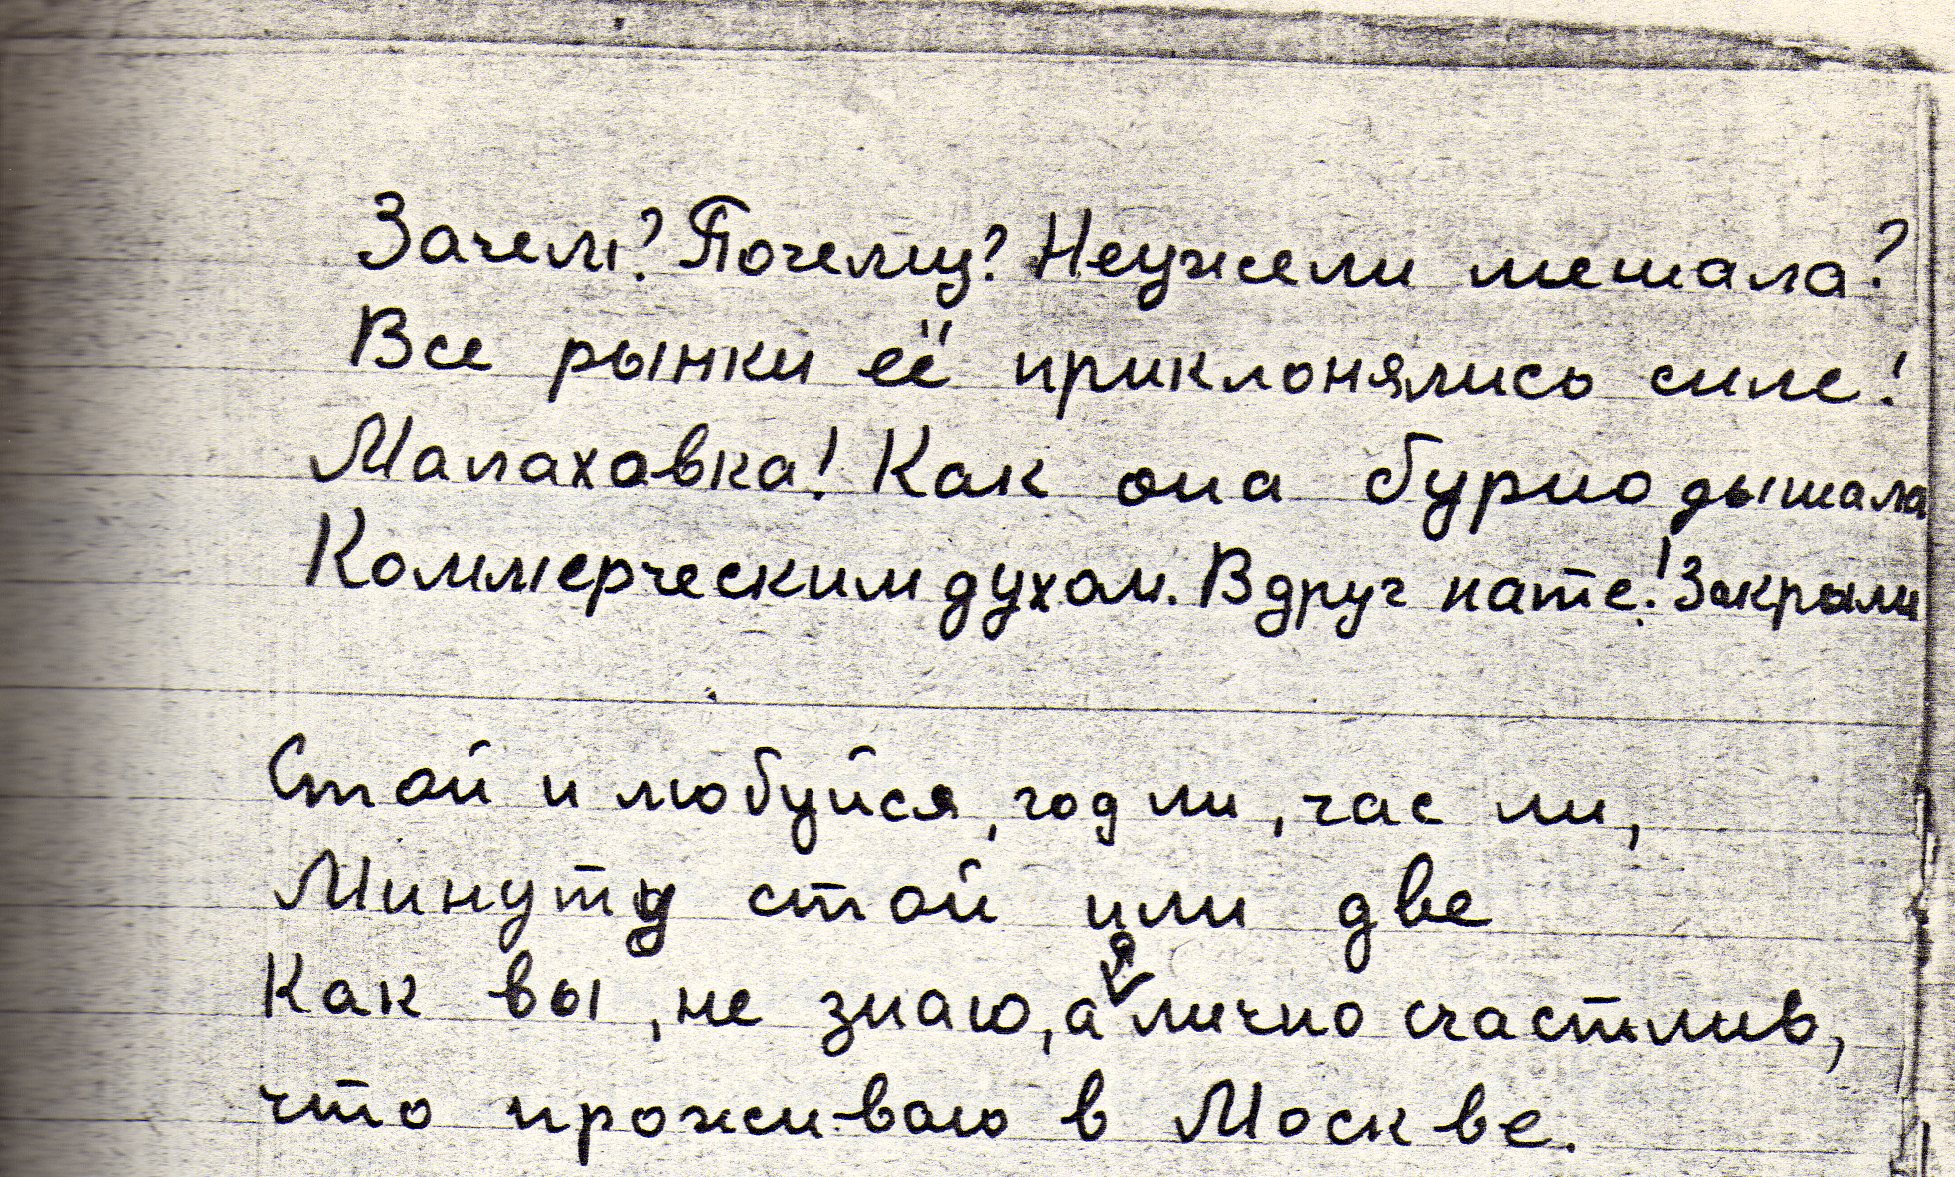 Зачем? Почему? Неужели мешала?
Все рынки её приклонялись силе!
Малаховка! Как она бурно дышала
Коммерческим духом. Вдруг нате! Закрыли
Стой и любуйся, год ли, час ли,
Минуту стой или две
Как вы, не знаю, а я лично счастлив,
что проживаю в Москве.